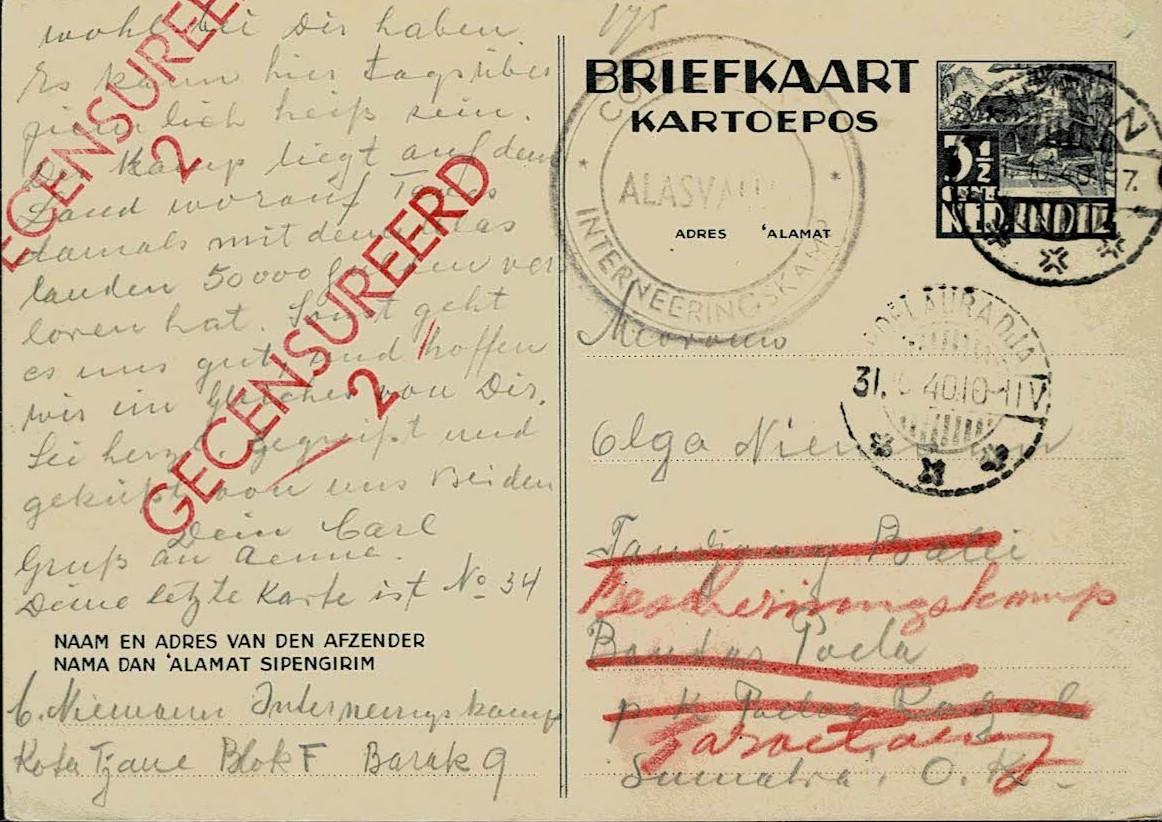 wohl bei Dir haben.
Es kann hier tagsüber
ziemlich heiß sein.
Der Kamp liegt auf dem
Land worauf
damals mit dem
landen 50000 Gulden ver
loren hat. Sonst geht
es uns gut und hoffen
wir im Gleichen von Dir.
Sei herzl. gegrüßt und
geküßt von uns Beiden
Dein Carl
Gruß an Aenne.
Deine letzte Karte ist No 34
GECENSUREERD
2
GECENSUREERD
2
NAAM EN ADRES VAN DEN AFZENDER
NAMA DAN 'ALAMAT SIPENGIRIM
C. Niemann Interneringskamp
Kota Tjane Blok F Barak 9
175
BRIEFKAART
KARTOEPOS
3½
CENT
NED. INDIE
ALASVALLEI
INTERNEERINGSKAMP
ADRES 'ALAMAT
Mevrouw
31. 40.10-11V
Olga Niemann
Tandjong Balei
Beschermingskamp
Bandar Poela
Sumatra's O.K.